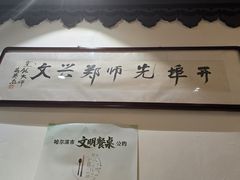 开埠先师郑兴文
哈尔滨市 文明餐桌 公约